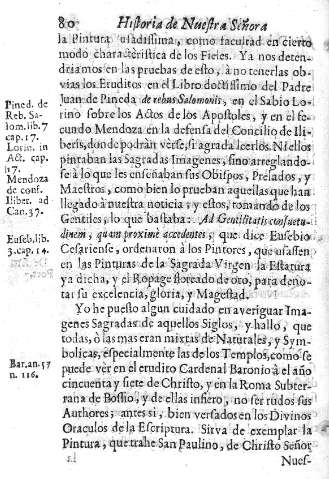 80 Historia de Nuestra Señora
la Pintura usadissima, como facultad en cierto
modo characteristica de los Fieles. Ya nos deten-
driamos en las pruebas de esto, à no tenerlas ob-
vias los Eruditos en el Libro doctissimo del Padre
Juan de Pineda de rebus Salomonis, en el Sabio Lo-
rino sobre los Actos de los Apostoles, y en el fe-
cundo Mendoza en la defensa del Concilio de Ili-
beris, donde podràn verse, si agrada leerlos. Ni ellos
pintaban las Sagradas Imagenes, sino arreglando-
se à lo que les enseñaban sus Obispos, Prelados, y
Maestros, como bien lo prueban aquellas que han
llegado à nuestra noticia, y estos, tomando de los
Gentiles, lo que bastaba: Ad Gentilitatis consuetu-
dinem, quam proximè accedentes; que dice Eusebio
Cesariense, ordenaron à los Pintores, que usassen
en las Pinturas de la Sagrada Virgen la Estatura
ya dicha, y el Ropage floreado de oro, para deno-
tar su excelencia, gloria, y Magestad.
Yo he puesto algun cuidado en averiguar Ima-
genes Sagradas de aquellos Siglos, y hallo, que
todas, ò las mas eran mixtas de Naturales, y Sym-
bolicas, especialmente las de los Templos, como se
puede ver en el erudito Cardenal Baronio à el año
cincuenta y siete de Christo, y en la Roma Subter-
ranea de Bossio, y de ellas infiero, no ser rudos sus
Authores; antes si, bien versados en los Divinos
Oraculos de la Escriptura. Sirva de exemplar la
Pintura, que trahe San Paulino, de Christo Señor
Nues-
Pined. de
Reb. Sa-
lom. lib. 7
cap. 17.
Lorin. in
Act. cap.
17.
Mendoza
de conf.
Iliber. ad
Can. 37.
Euseb. lib.
3. cap. 14.
Bar. an. 57
n. 116.